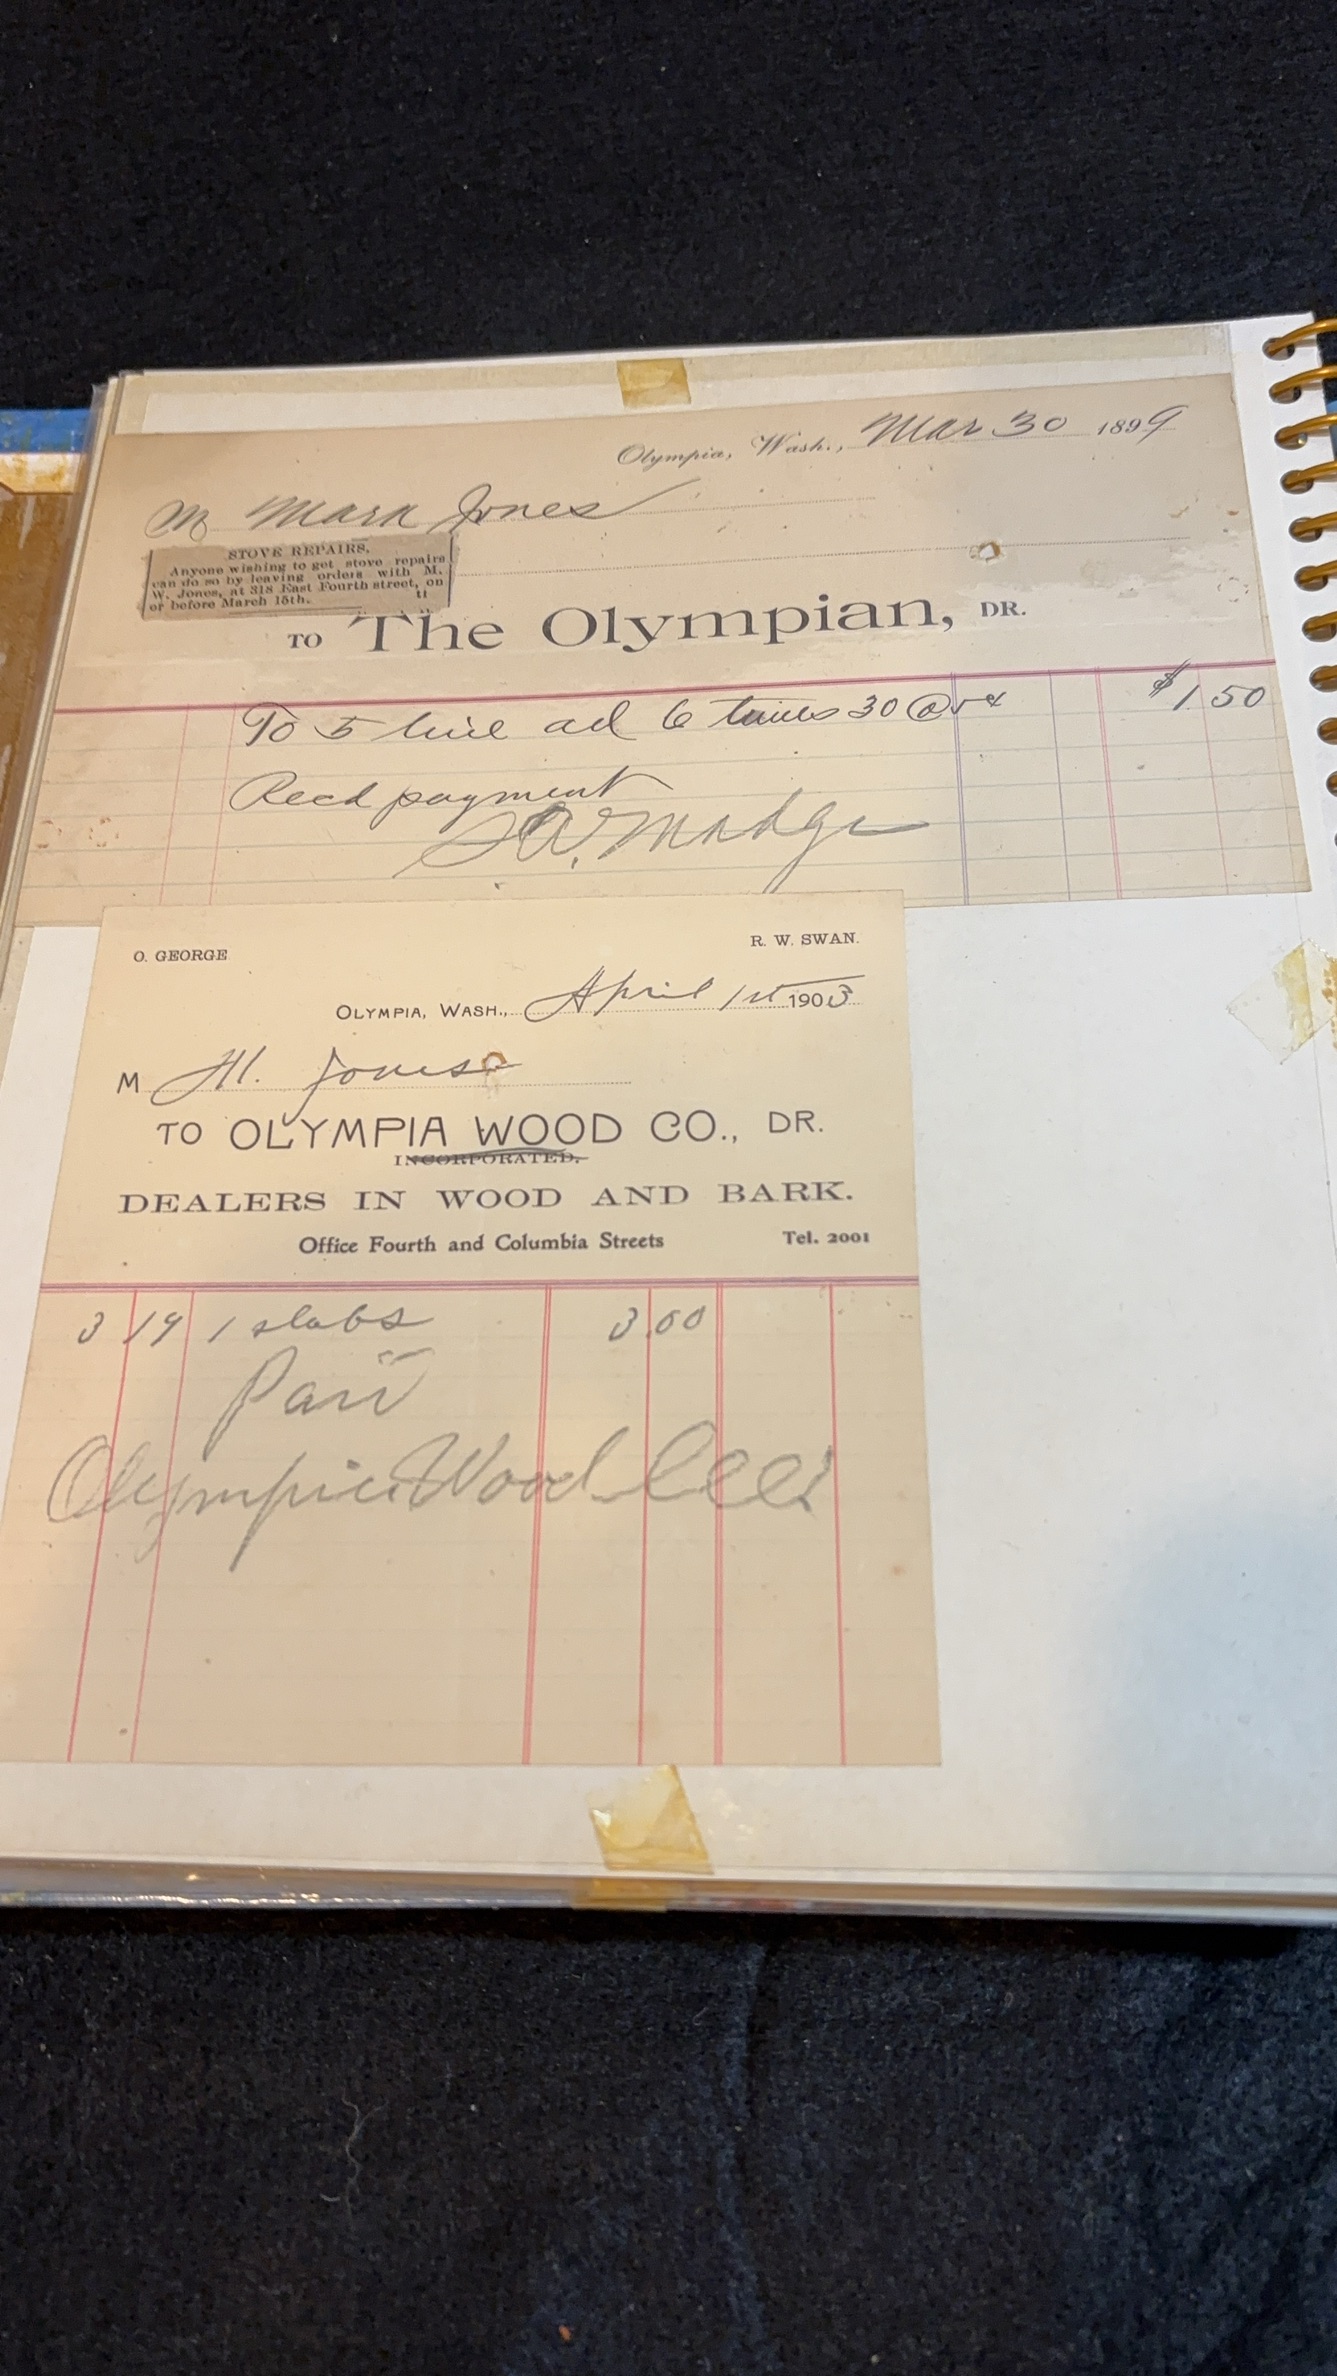 Olympia, Wash., Mar 30 1899
M Mark Jones
STOVE REPAIRS.
Anyone wishing to get stove repairs
can do so by leaving orders with M.
W. Jones, at 318 East Fourth street, on
or before March 15th. tt
TO The Olympian, DR.
To 5 line ad 6 times 30 @ 5¢ $1 50
Recd payment
O. GEORGE R. W. SWAN.
OLYMPIA, WASH., April 1st 1903
M M. Jones
TO OLYMPIA WOOD CO., DR.
INCORPORATED.
DEALERS IN WOOD AND BARK.
Office Fourth and Columbia Streets Tel. 2001
3 19 1 slabs 3.00
Olympia Wood